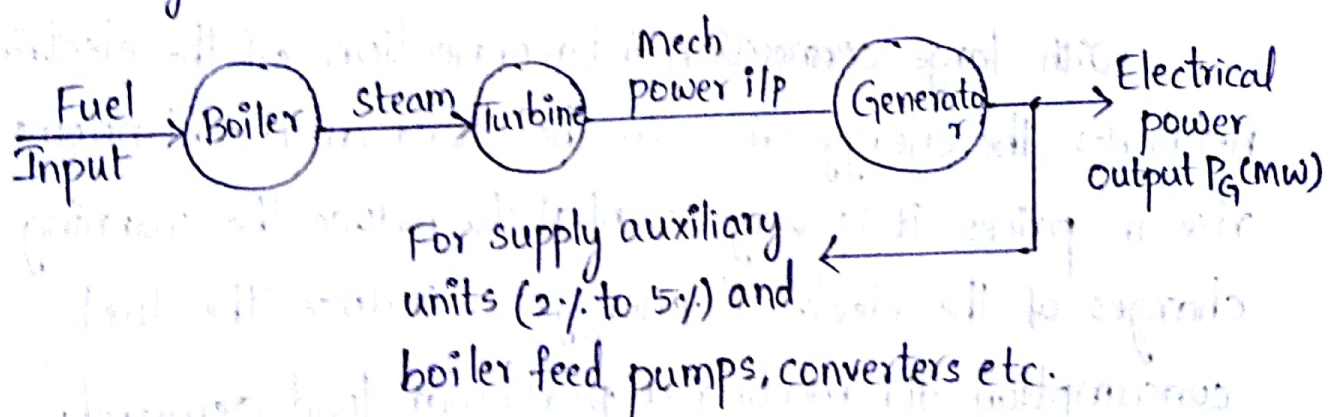 Fuel
Input
Boiler
steam
Turbine
mech
power i/p
Generator
Electrical
power
output PG (mw)
For supply auxiliary
units (2% to 5%) and
boiler feed pumps, converters etc.